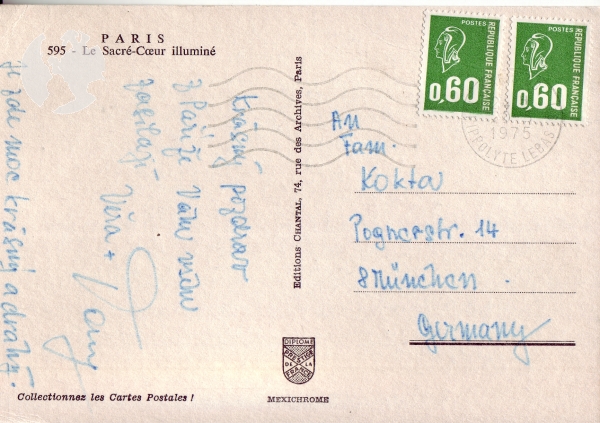 PARIS
595 - Le Sacré-Cœur illuminé
Krásný pozdrav
z Paříže Vám všem
zasílají
Věra +
je zde moc krásný a drahý.
Collectionnez les Cartes Postales !
Editions CHANTAL, 74, rue des Archives, Paris
DIPLOME
PRESTIGE
DE LA
FRANCE
MEXICHROME
POSTES
REPUBLIQUE FRANÇAISE
0,60
POSTES
REPUBLIQUE FRANÇAISE
0,60
1975
IPPOLYTE LEBAS
An
Fam.
Kokta
Pognerstr. 14
8 München
Germany